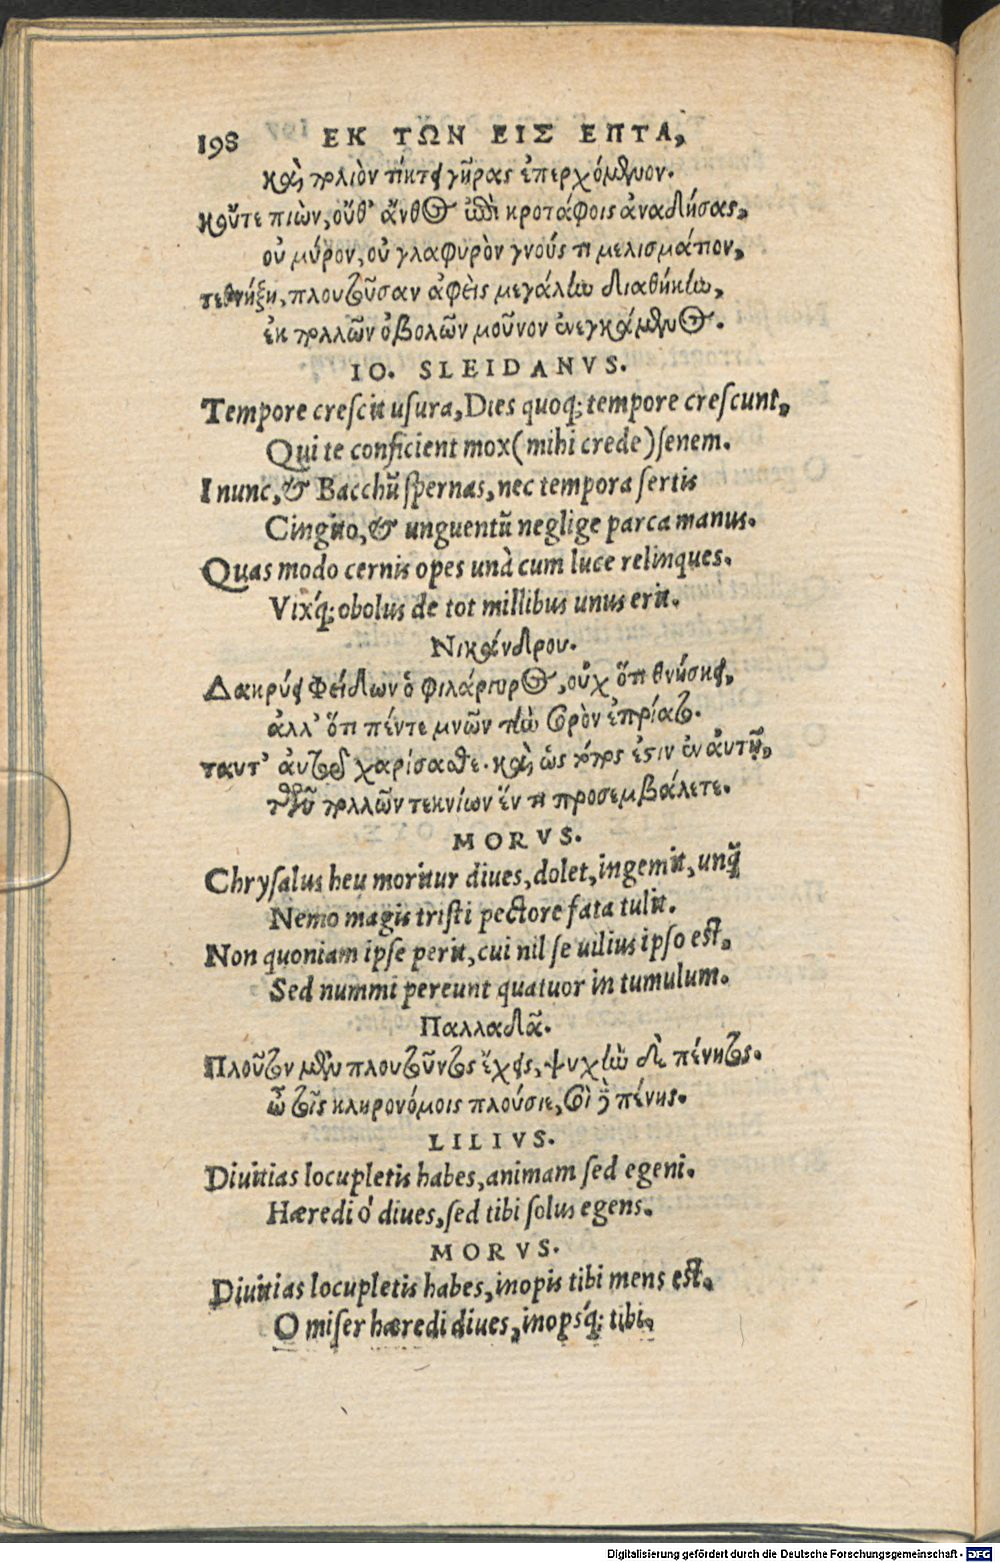 198 ΕΚ ΤΩΝ ΕΙΣ ΕΠΤΑ,
καὶ πολιὸν τίκτει γῆρας ἐπερχόμενον.
κοὔτε πιὼν, οὔθ' ἄνθος ἐπὶ κροτάφοις ἀναδήσας,
οὐ μύρον, οὐ γλαφυρὸν γνούς τι μελισμάτιον,
τεθνήξῃ, πλουτοῦσαν ἀφεὶς μεγάλην διαθήκην,
ἐκ πολλῶν ὀβολῶν μοῦνον ἐνεγκάμενος.
IO. SLEIDANVS.
Tempore crescit usura, Dies quoq; tempore crescunt,
Qui te conficient mox (mihi crede) senem.
I nunc, & Bacchũ spernas, nec tempora sertis
Cingito, & unguentũ neglige parca manus.
Quas modo cernis opes unà cum luce relinques.
Vixq́; obolus de tot millibus unus erit.
Νικάνδρου.
Δακρύει Φείδων ὁ φιλάργυρος, οὐχ ὅτι θνήσκει,
ἀλλ' ὅτι πέντε μνῶν τὴν σορὸν ἐπρίατο.
ταυτ' αὐτῷ χαρίσασθε. καὶ ὡς τόπος ἐστιν ἐν αὐτῇ,
τῶν πολλῶν τεκνίων ἕν τι προσεμβάλετε.
MORVS.
Chrysalus heu moritur diues, dolet, ingemit, unq̃
Nemo magis tristi pectore fata tulit.
Non quoniam ipse perit, cui nil se uilius ipso est,
Sed nummi pereunt quatuor in tumulum.
Παλλαδᾶ.
Πλοῦτον μὲν πλουτοῦντος ἔχεις, ψυχὴν δὲ πένητος.
ὦ τοῖς κληρονόμοις πλούσιε, σοὶ δὲ πένης.
LILIVS.
Diuitias locupletis habes, animam sed egeni.
Hæredi ò diues, sed tibi solus egens.
MORVS.
Diuitias locupletis habes, inopis tibi mens est,
O miser hæredi diues, inopsq́; tibi.
Digitalisierung gefördert durch die Deutsche Forschungsgemeinschaft - DFG